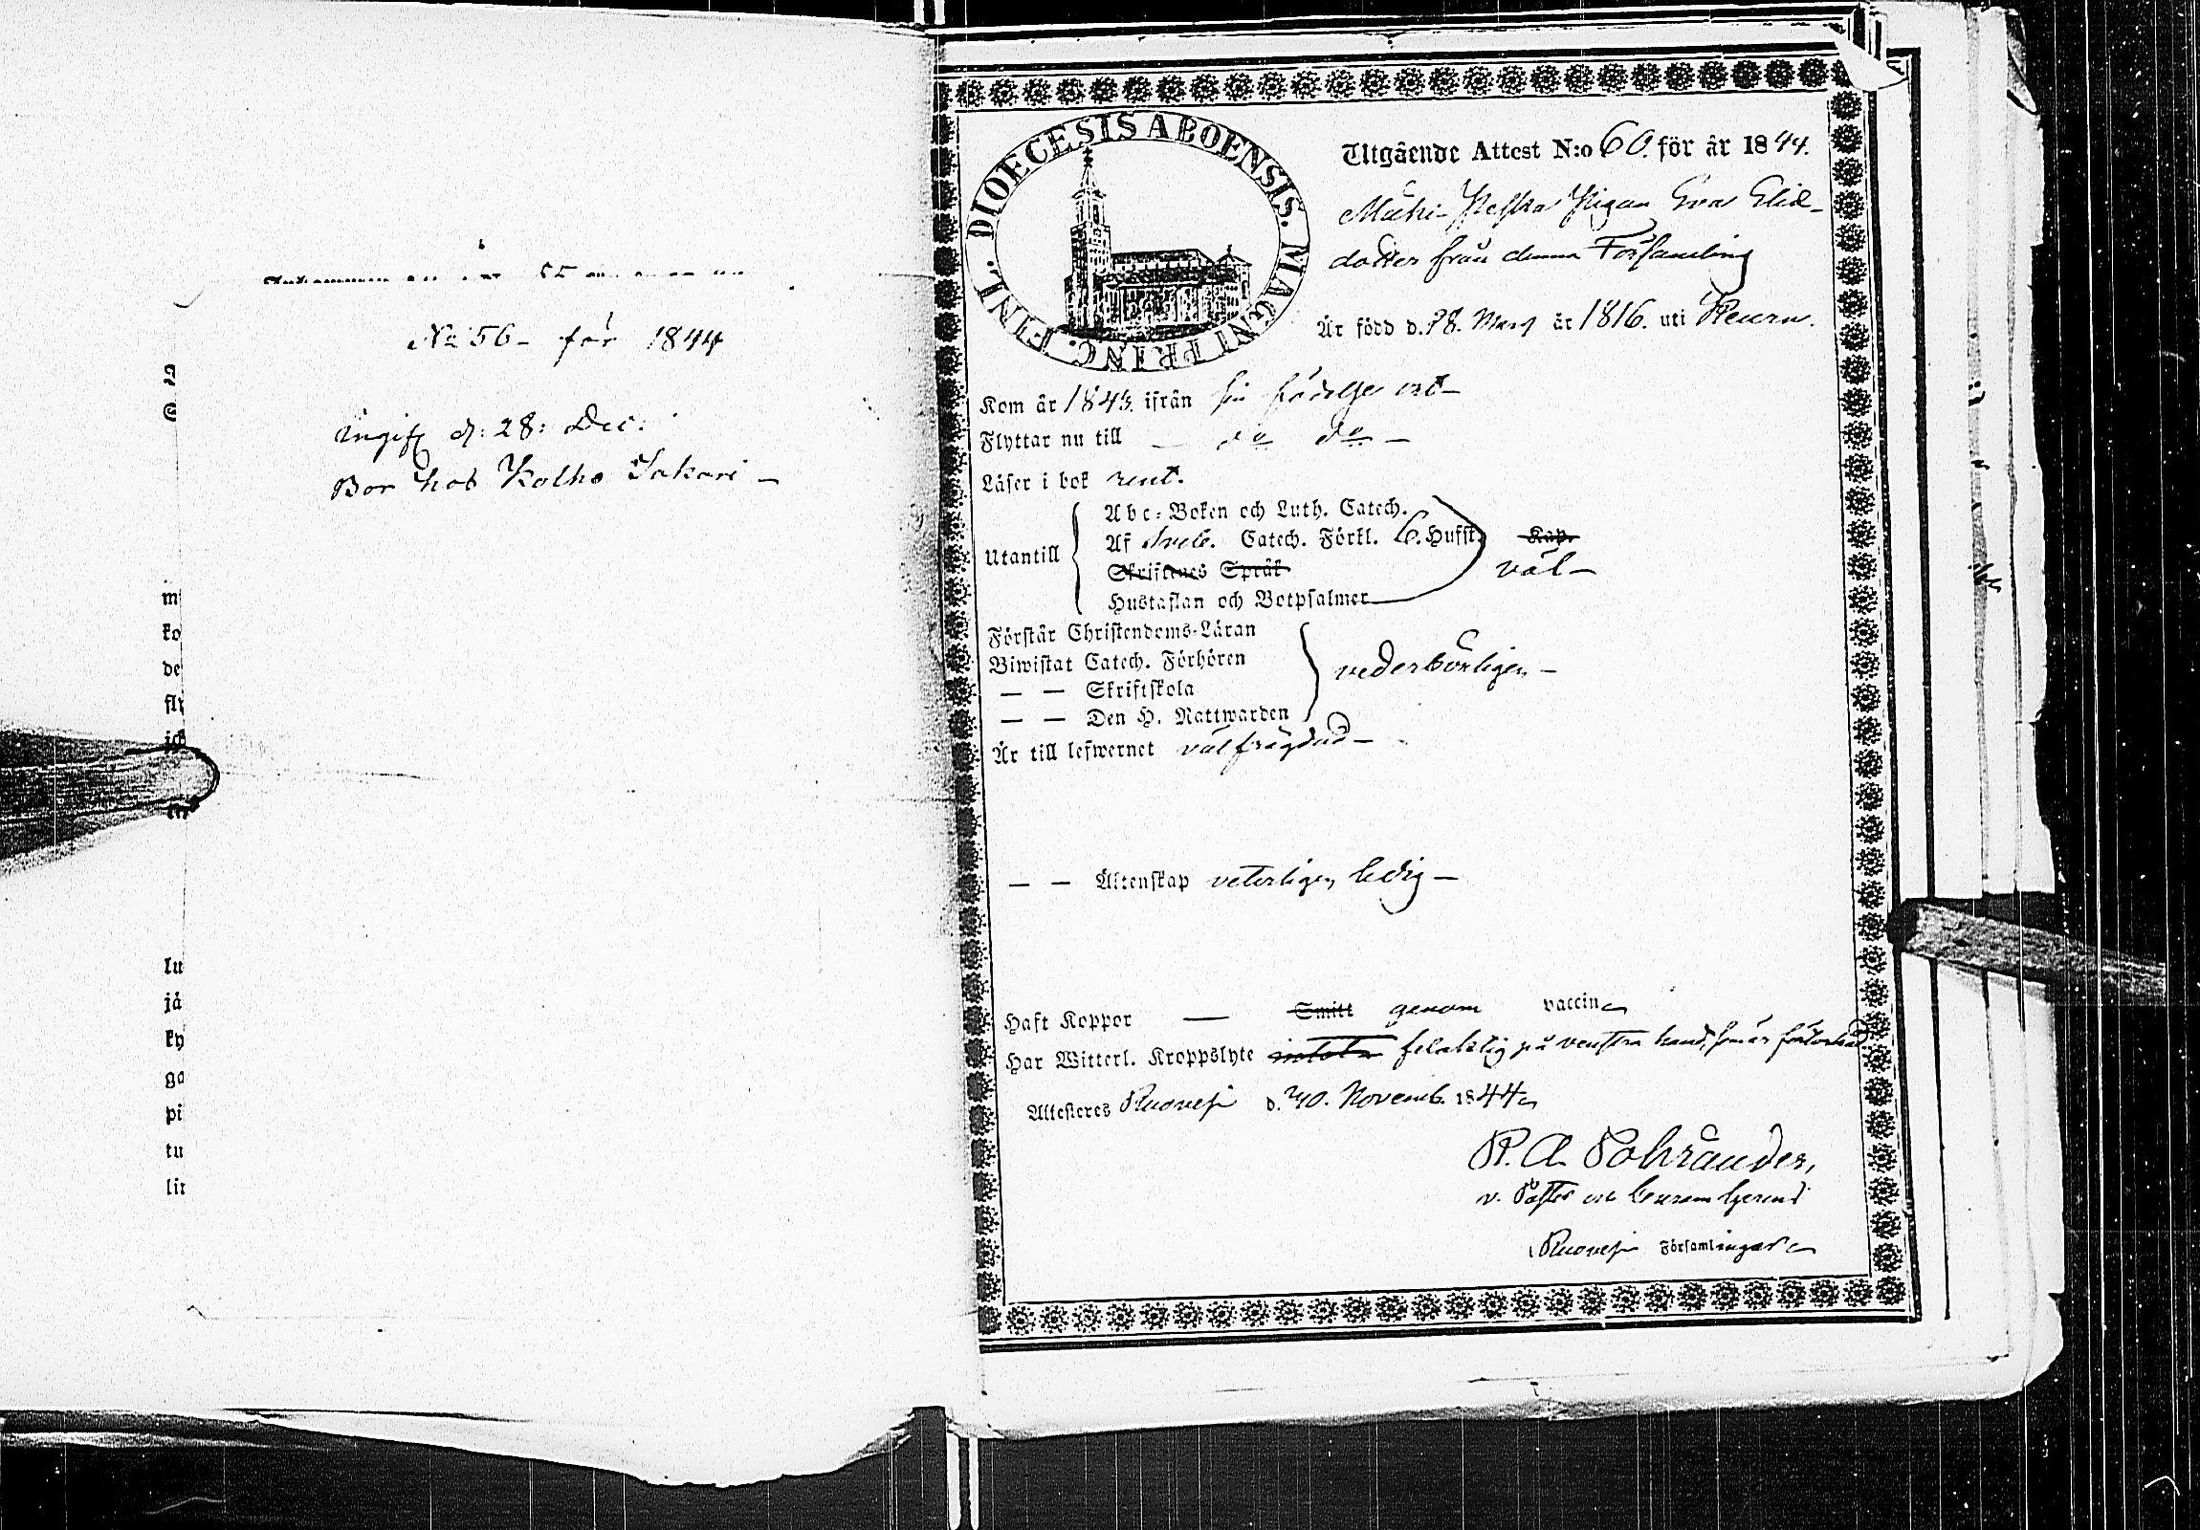 No 56 – för 1844
ingift d: 28: Dec:
Bor hos Kolho Sakari –
DIOECESIS ABOENSIS. MAGNI PRINC. FINL.
Utgående Attest N:o 60. för år 1844.
Pigan Eva Elid-
dotter från denna Församling
Är född d. 28. Mars år 1816. uti Keuru.
Kom år 1843. ifrån sin födelse ort –
Flyttar nu till – do do –
Läser i bok rent.
Utantill
Abc-Boken och Luth. Catech.
Af Sveb. Catech. Förkl. 6. Hufst. Kap.
Skriftenes Språk väl –
Hustaflan och Botpsalmer
Förstår Christendoms-Läran
Biwistat Catech. Förhören vederbörligen –
— — Skriftskola
— — Den H. Nattwarden
Är till lefwernet välfrägdad –
— — Äktenskap veterligen ledig –
Haft Koppor — Smitt genom vaccin
Har Witterl. Kroppslyte felaktig på venstra hand, som är
Attesteras Ruovesi d. 30. Novemb. 1844
R. A.
v. Pastor
Ruovesi Församlingar
m
ko
de
lu
jä
ky
ga
pi
tu